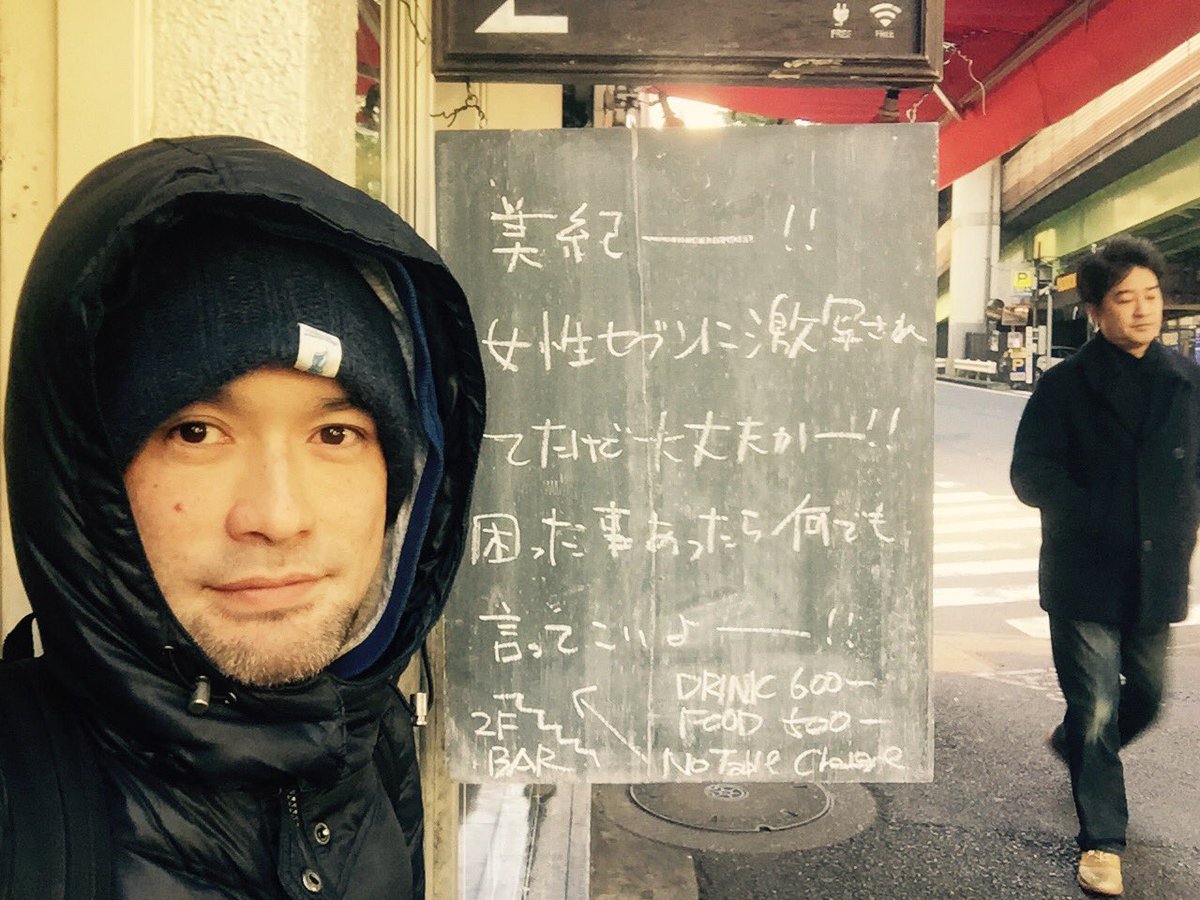 FREE FREE
美紀ーー!!
女性セブンに激写され
てたけど大丈夫かー!!
困った事あったら何でも
言ってこいよーー!!
DRINK 600-
2F FOOD 500-
BAR No Table Charge
P
P